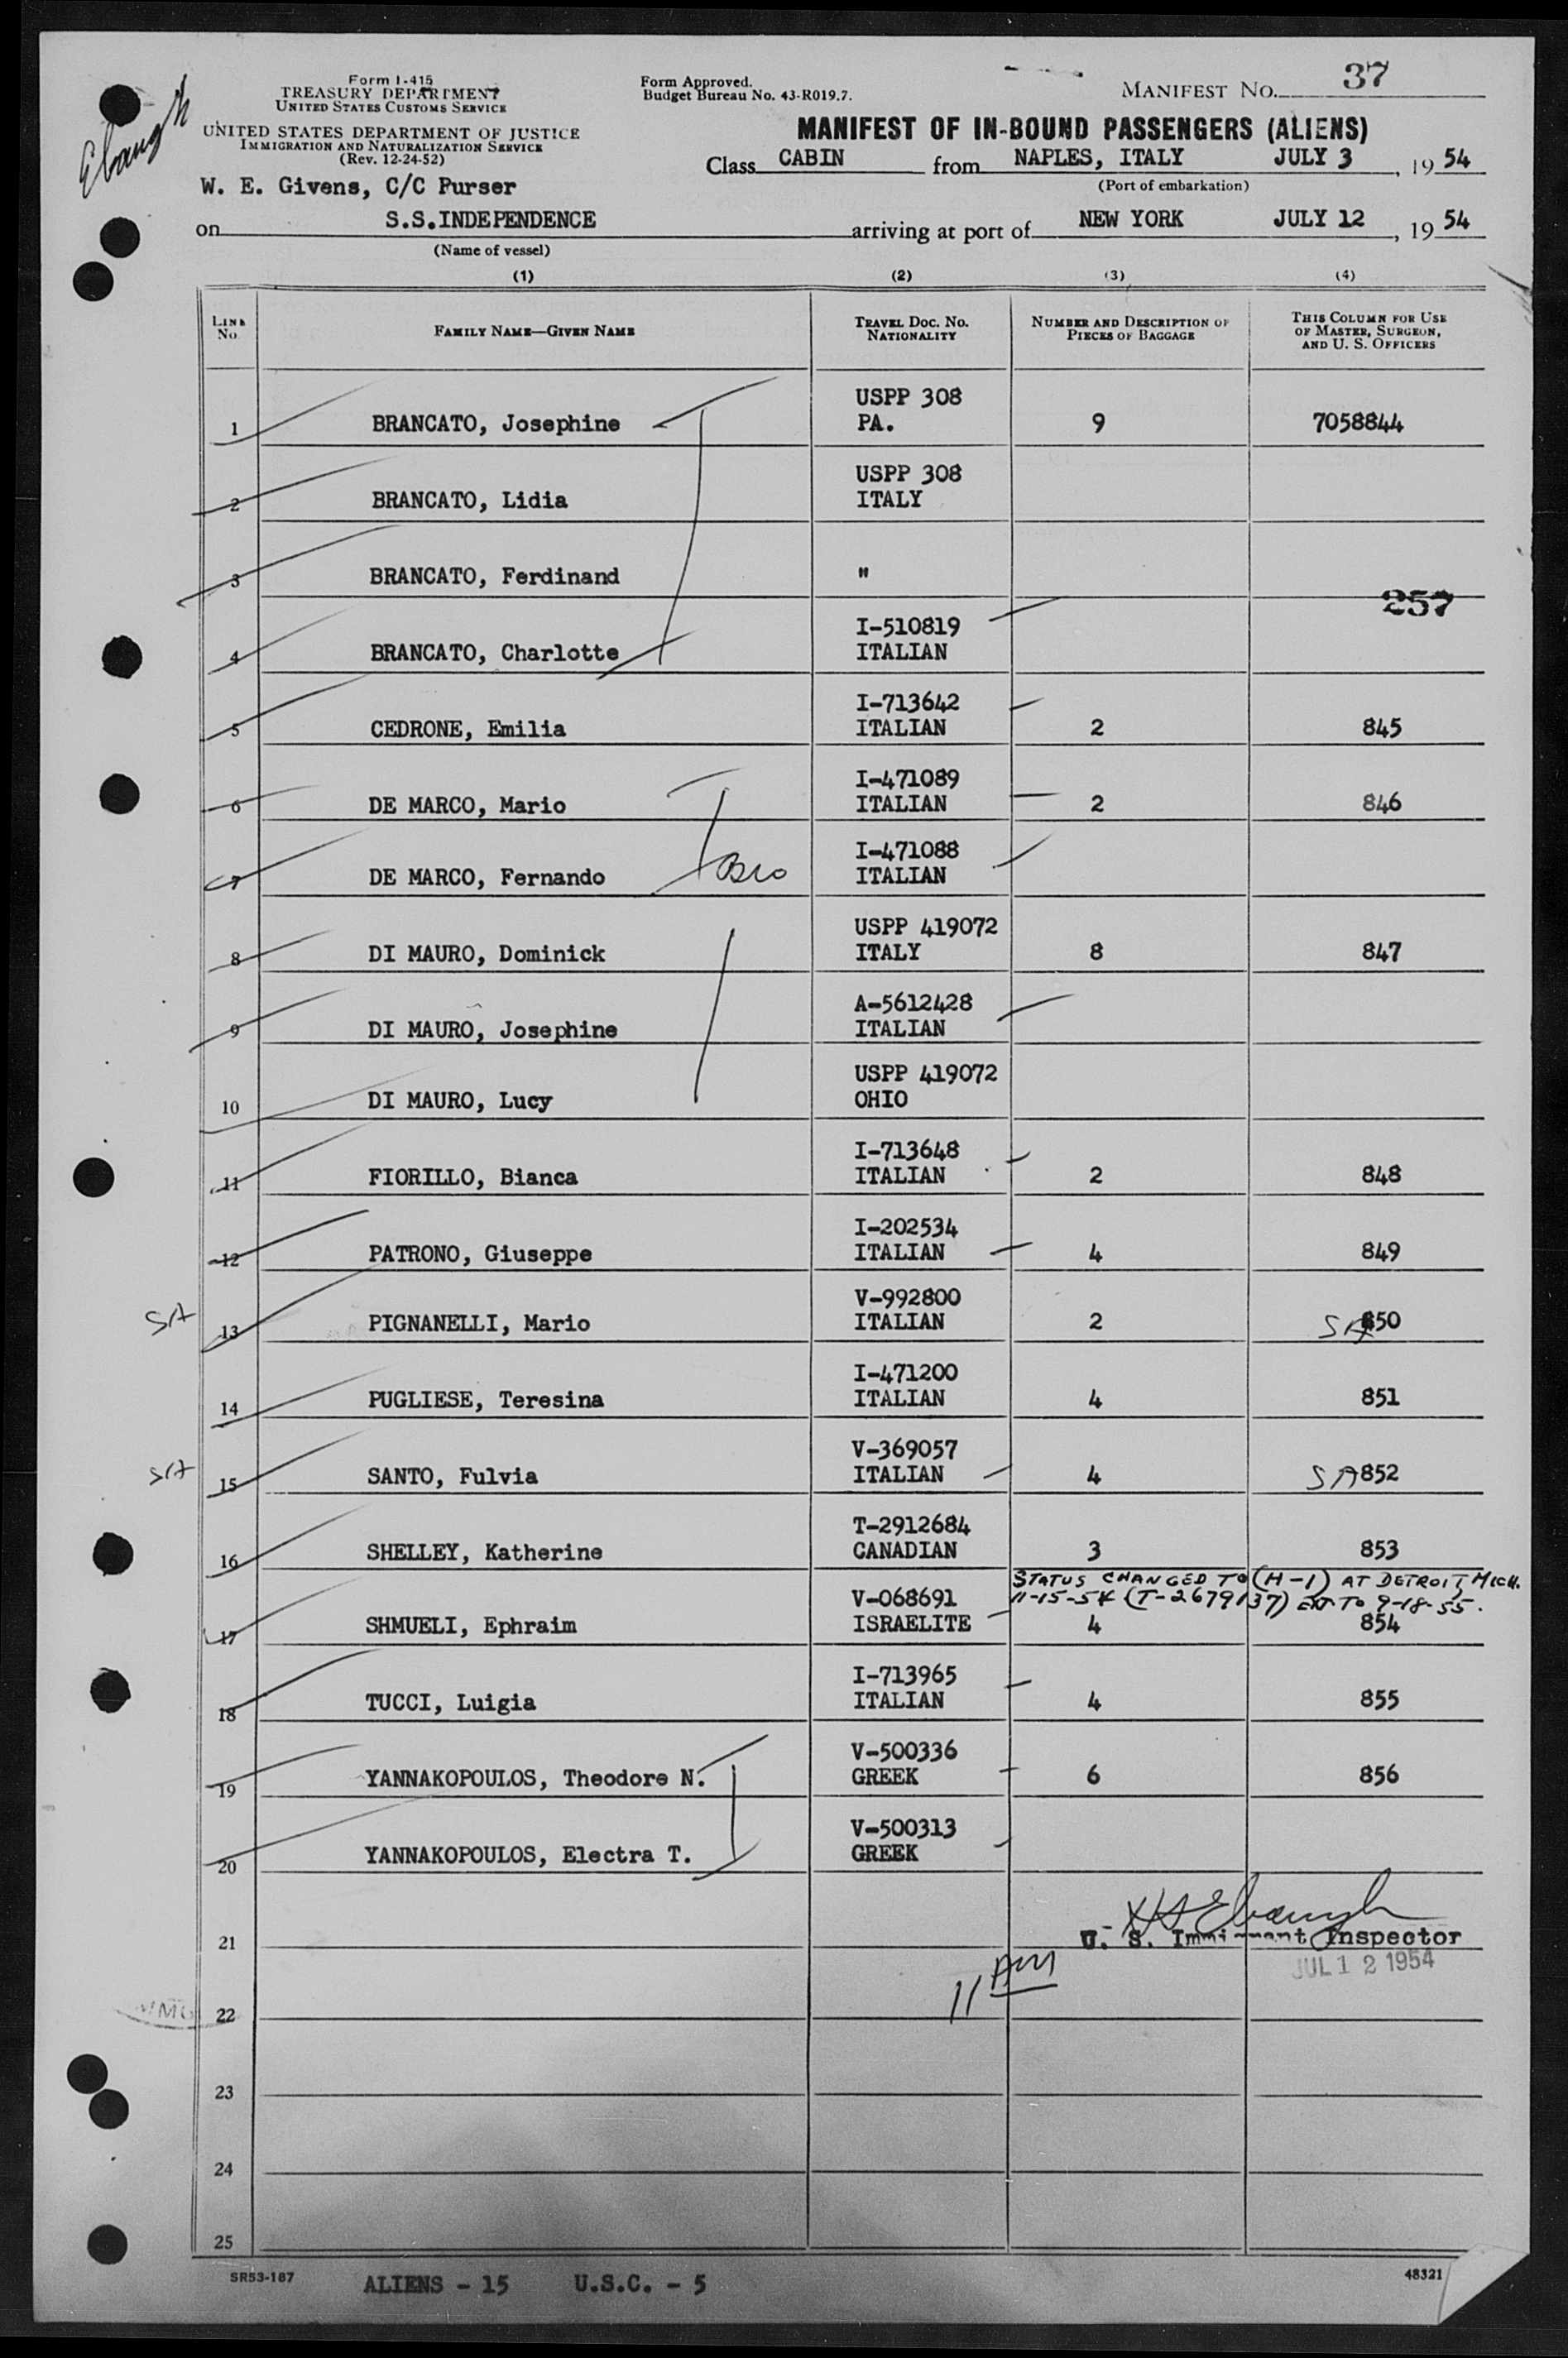 Ebaugh
Form I-415
TREASURY DEPARTMENT
UNITED STATES CUSTOMS SERVICE
UNITED STATES DEPARTMENT OF JUSTICE
IMMIGRATION AND NATURALIZATION SERVICE
(Rev. 12-24-52)
Form Approved.
Budget Bureau No. 43-R019.7.
MANIFEST NO. 37
MANIFEST OF IN-BOUND PASSENGERS (ALIENS)
Class CABIN from NAPLES, ITALY JULY 3, 1954
(Port of embarkation)
W. E. Givens, C/C Purser
on S.S.INDEPENDENCE arriving at port of NEW YORK JULY 12, 1954
(Name of vessel)
(1) (2) (3) (4)
LINE No. FAMILY NAME—GIVEN NAME TRAVEL DOC. NO. NATIONALITY NUMBER AND DESCRIPTION OF PIECES OF BAGGAGE THIS COLUMN FOR USE OF MASTER, SURGEON, AND U. S. OFFICERS
USPP 308
1 BRANCATO, Josephine PA. 9 7058844
USPP 308
2 BRANCATO, Lidia ITALY
3 BRANCATO, Ferdinand "
257
I-510819
4 BRANCATO, Charlotte ITALIAN
I-713642
5 CEDRONE, Emilia ITALIAN 2 845
I-471089
6 DE MARCO, Mario ITALIAN 2 846
I-471088
7 DE MARCO, Fernando Bro ITALIAN
USPP 419072
8 DI MAURO, Dominick ITALY 8 847
A-5612428
9 DI MAURO, Josephine ITALIAN
USPP 419072
10 DI MAURO, Lucy OHIO
I-713648
11 FIORILLO, Bianca ITALIAN 2 848
I-202534
12 PATRONO, Giuseppe ITALIAN 4 849
V-992800
SA 13 PIGNANELLI, Mario ITALIAN 2 SA 850
I-471200
14 PUGLIESE, Teresina ITALIAN 4 851
V-369057
SA 15 SANTO, Fulvia ITALIAN 4 SA 852
T-2912684
16 SHELLEY, Katherine CANADIAN 3 853
STATUS CHANGED TO (H-1) AT DETROIT, MICH.
V-068691 11-15-54 (T-2679137) EXT TO 9-18-55.
17 SHMUELI, Ephraim ISRAELITE 4 854
I-713965
18 TUCCI, Luigia ITALIAN 4 855
V-500336
19 YANNAKOPOULOS, Theodore N. GREEK 6 856
V-500313
20 YANNAKOPOULOS, Electra T. GREEK
HS Ebaugh
21 U. S. Immigrant Inspector
11 AM JUL 12 1954
22
23
24
25
SR53-187 ALIENS - 15 U.S.C. - 5 48321